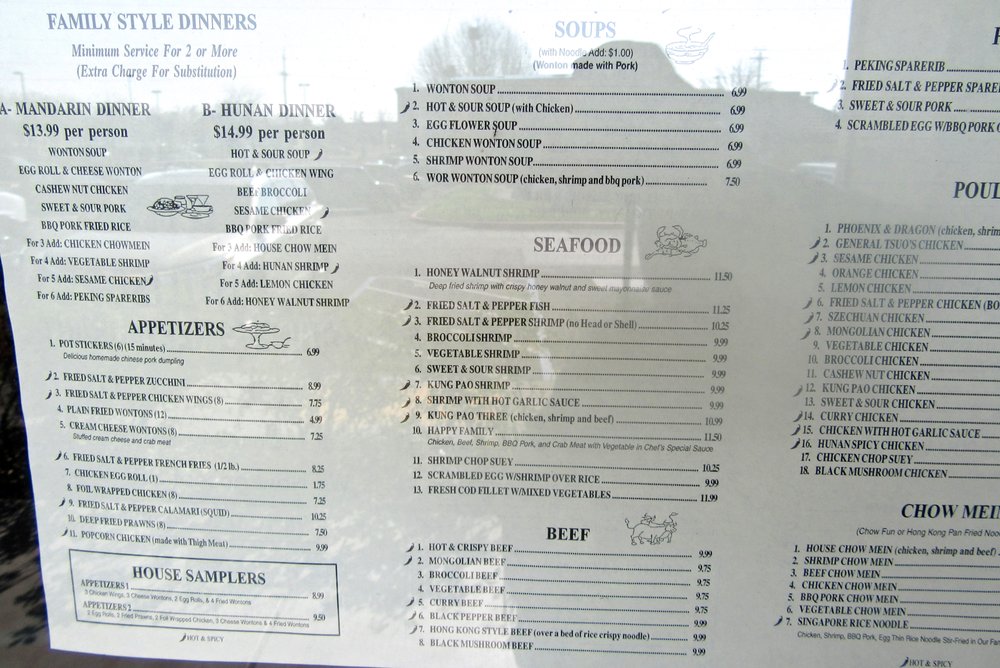 FAMILY STYLE DINNERS
Minimum Service For 2 or More
(Extra Charge For Substitution)
A- MANDARIN DINNER
$13.99 per person
WONTON SOUP
EGG ROLL & CHEESE WONTON
CASHEW NUT CHICKEN
SWEET & SOUR PORK
BBQ PORK FRIED RICE
For 3 Add: CHICKEN CHOWMEIN
For 4 Add: VEGETABLE SHRIMP
For 5 Add: SESAME CHICKEN
For 6 Add: PEKING SPARERIBS
B- HUNAN DINNER
$14.99 per person
HOT & SOUR SOUP
EGG ROLL & CHICKEN WING
BEEF BROCCOLI
SESAME CHICKEN
BBQ PORK FRIED RICE
For 3 Add: HOUSE CHOW MEIN
For 4 Add: HUNAN SHRIMP
For 5 Add: LEMON CHICKEN
For 6 Add: HONEY WALNUT SHRIMP
APPETIZERS
1. POT STICKERS (6) (15 minutes) 6.99
Delicious homemade chinese pork dumpling
2. FRIED SALT & PEPPER ZUCCHINI 8.99
3. FRIED SALT & PEPPER CHICKEN WINGS (8) 7.75
4. PLAIN FRIED WONTONS (12) 4.99
5. CREAM CHEESE WONTONS (8) 7.25
Stuffed cream cheese and crab meat
6. FRIED SALT & PEPPER FRENCH FRIES (1/2 lb.) 8.25
7. CHICKEN EGG ROLL (1) 1.75
8. FOIL WRAPPED CHICKEN (8) 7.25
9. FRIED SALT & PEPPER CALAMARI (SQUID) 10.25
10. DEEP FRIED PRAWNS (8) 7.50
11. POPCORN CHICKEN (made with Thigh Meat) 9.99
HOUSE SAMPLERS
APPETIZERS 1 8.99
3 Chicken Wings, 3 Cheese Wontons, 2 Egg Rolls, & 4 Fried Wontons
APPETIZERS 2 9.50
2 Egg Rolls, 2 Fried Prawns, 2 Foil Wrapped Chicken, 3 Cheese Wontons & 4 Fried Wontons
HOT & SPICY
SOUPS
(with Noodle Add: $1.00)
(Wonton made with Pork)
1. WONTON SOUP 6.99
2. HOT & SOUR SOUP (with Chicken) 6.99
3. EGG FLOWER SOUP 6.99
4. CHICKEN WONTON SOUP 6.99
5. SHRIMP WONTON SOUP 6.99
6. WOR WONTON SOUP (chicken, shrimp and bbq pork) 7.50
SEAFOOD
1. HONEY WALNUT SHRIMP 11.50
Deep fried shrimp with crispy honey walnut and sweet mayonnaise sauce
2. FRIED SALT & PEPPER FISH 11.25
3. FRIED SALT & PEPPER SHRIMP (no Head or Shell) 10.25
4. BROCCOLI SHRIMP 9.99
5. VEGETABLE SHRIMP 9.99
6. SWEET & SOUR SHRIMP 9.99
7. KUNG PAO SHRIMP 9.99
8. SHRIMP WITH HOT GARLIC SAUCE 9.99
9. KUNG PAO THREE (chicken, shrimp and beef) 10.99
10. HAPPY FAMILY 11.50
Chicken, Beef, Shrimp, BBQ Pork, and Crab Meat with Vegetable in Chef's Special Sauce
11. SHRIMP CHOP SUEY 10.25
12. SCRAMBLED EGG W/SHRIMP OVER RICE 9.99
13. FRESH COD FILLET W/MIXED VEGETABLES 11.99
BEEF
1. HOT & CRISPY BEEF 9.99
2. MONGOLIAN BEEF 9.75
3. BROCCOLI BEEF 9.75
4. VEGETABLE BEEF 9.75
5. CURRY BEEF 9.75
6. BLACK PEPPER BEEF 9.99
7. HONG KONG STYLE BEEF (over a bed of rice crispy noodle) 9.99
8. BLACK MUSHROOM BEEF 9.99
1. PEKING SPARERIB
2. FRIED SALT & PEPPER SPARE
3. SWEET & SOUR PORK
4. SCRAMBLED EGG W/BBQ PORK
POUL
1. PHOENIX & DRAGON (chicken, shrim
2. GENERAL TSUO'S CHICKEN
3. SESAME CHICKEN
4. ORANGE CHICKEN
5. LEMON CHICKEN
6. FRIED SALT & PEPPER CHICKEN (BO
7. SZECHUAN CHICKEN
8. MONGOLIAN CHICKEN
9. VEGETABLE CHICKEN
10. BROCCOLI CHICKEN
11. CASHEW NUT CHICKEN
12. KUNG PAO CHICKEN
13. SWEET & SOUR CHICKEN
14. CURRY CHICKEN
15. CHICKEN WITH HOT GARLIC SAUCE
16. HUNAN SPICY CHICKEN
17. CHICKEN CHOP SUEY
18. BLACK MUSHROOM CHICKEN
CHOW MEI
(Chow Fun or Hong Kong Pan Fried Noo
1. HOUSE CHOW MEIN (chicken, shrimp and beef)
2. SHRIMP CHOW MEIN
3. BEEF CHOW MEIN
4. CHICKEN CHOW MEIN
5. BBQ PORK CHOW MEIN
6. VEGETABLE CHOW MEIN
7. SINGAPORE RICE NOODLE
Chicken, Shrimp, BBQ Pork, Egg Thin Rice Noodle Stir-Fried in Our Fam
HOT & SPICY